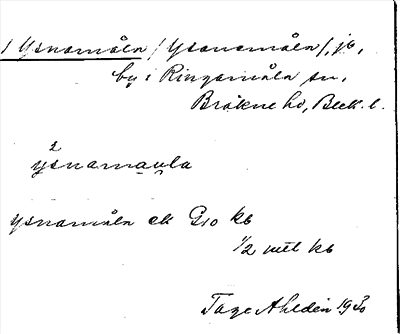 1 Ysnamåla / Ysanemåla /, jb,
by i Ringamåla sn,
Bräkne hd, Blek. l.
2
ysnamaula
Ysnamåla ek G10 kb
1/2 mtl kb
Tage Ahldén 1930